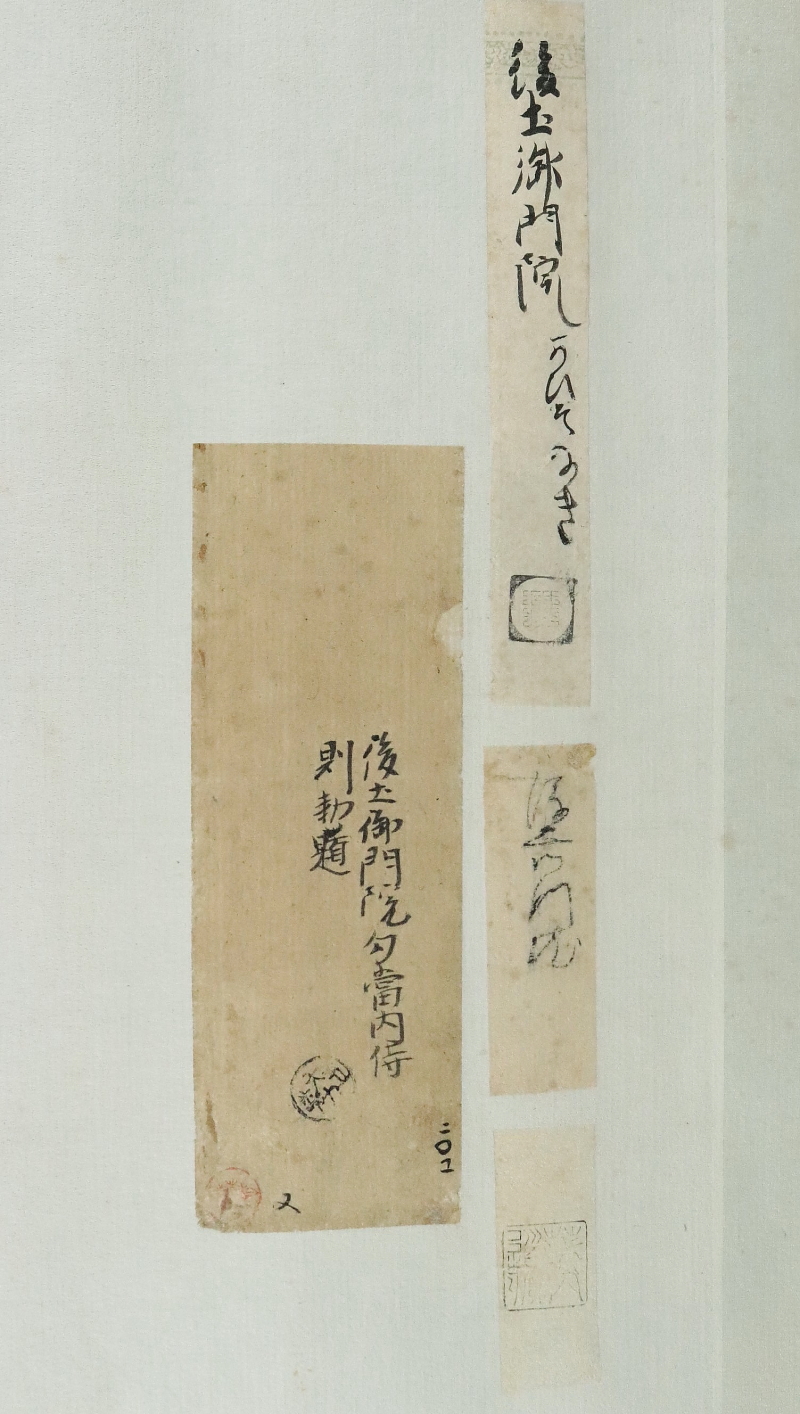 後土御門院 かひそなき
後土御門院
後土御門院勾當内侍
則勅題
二〇一
又